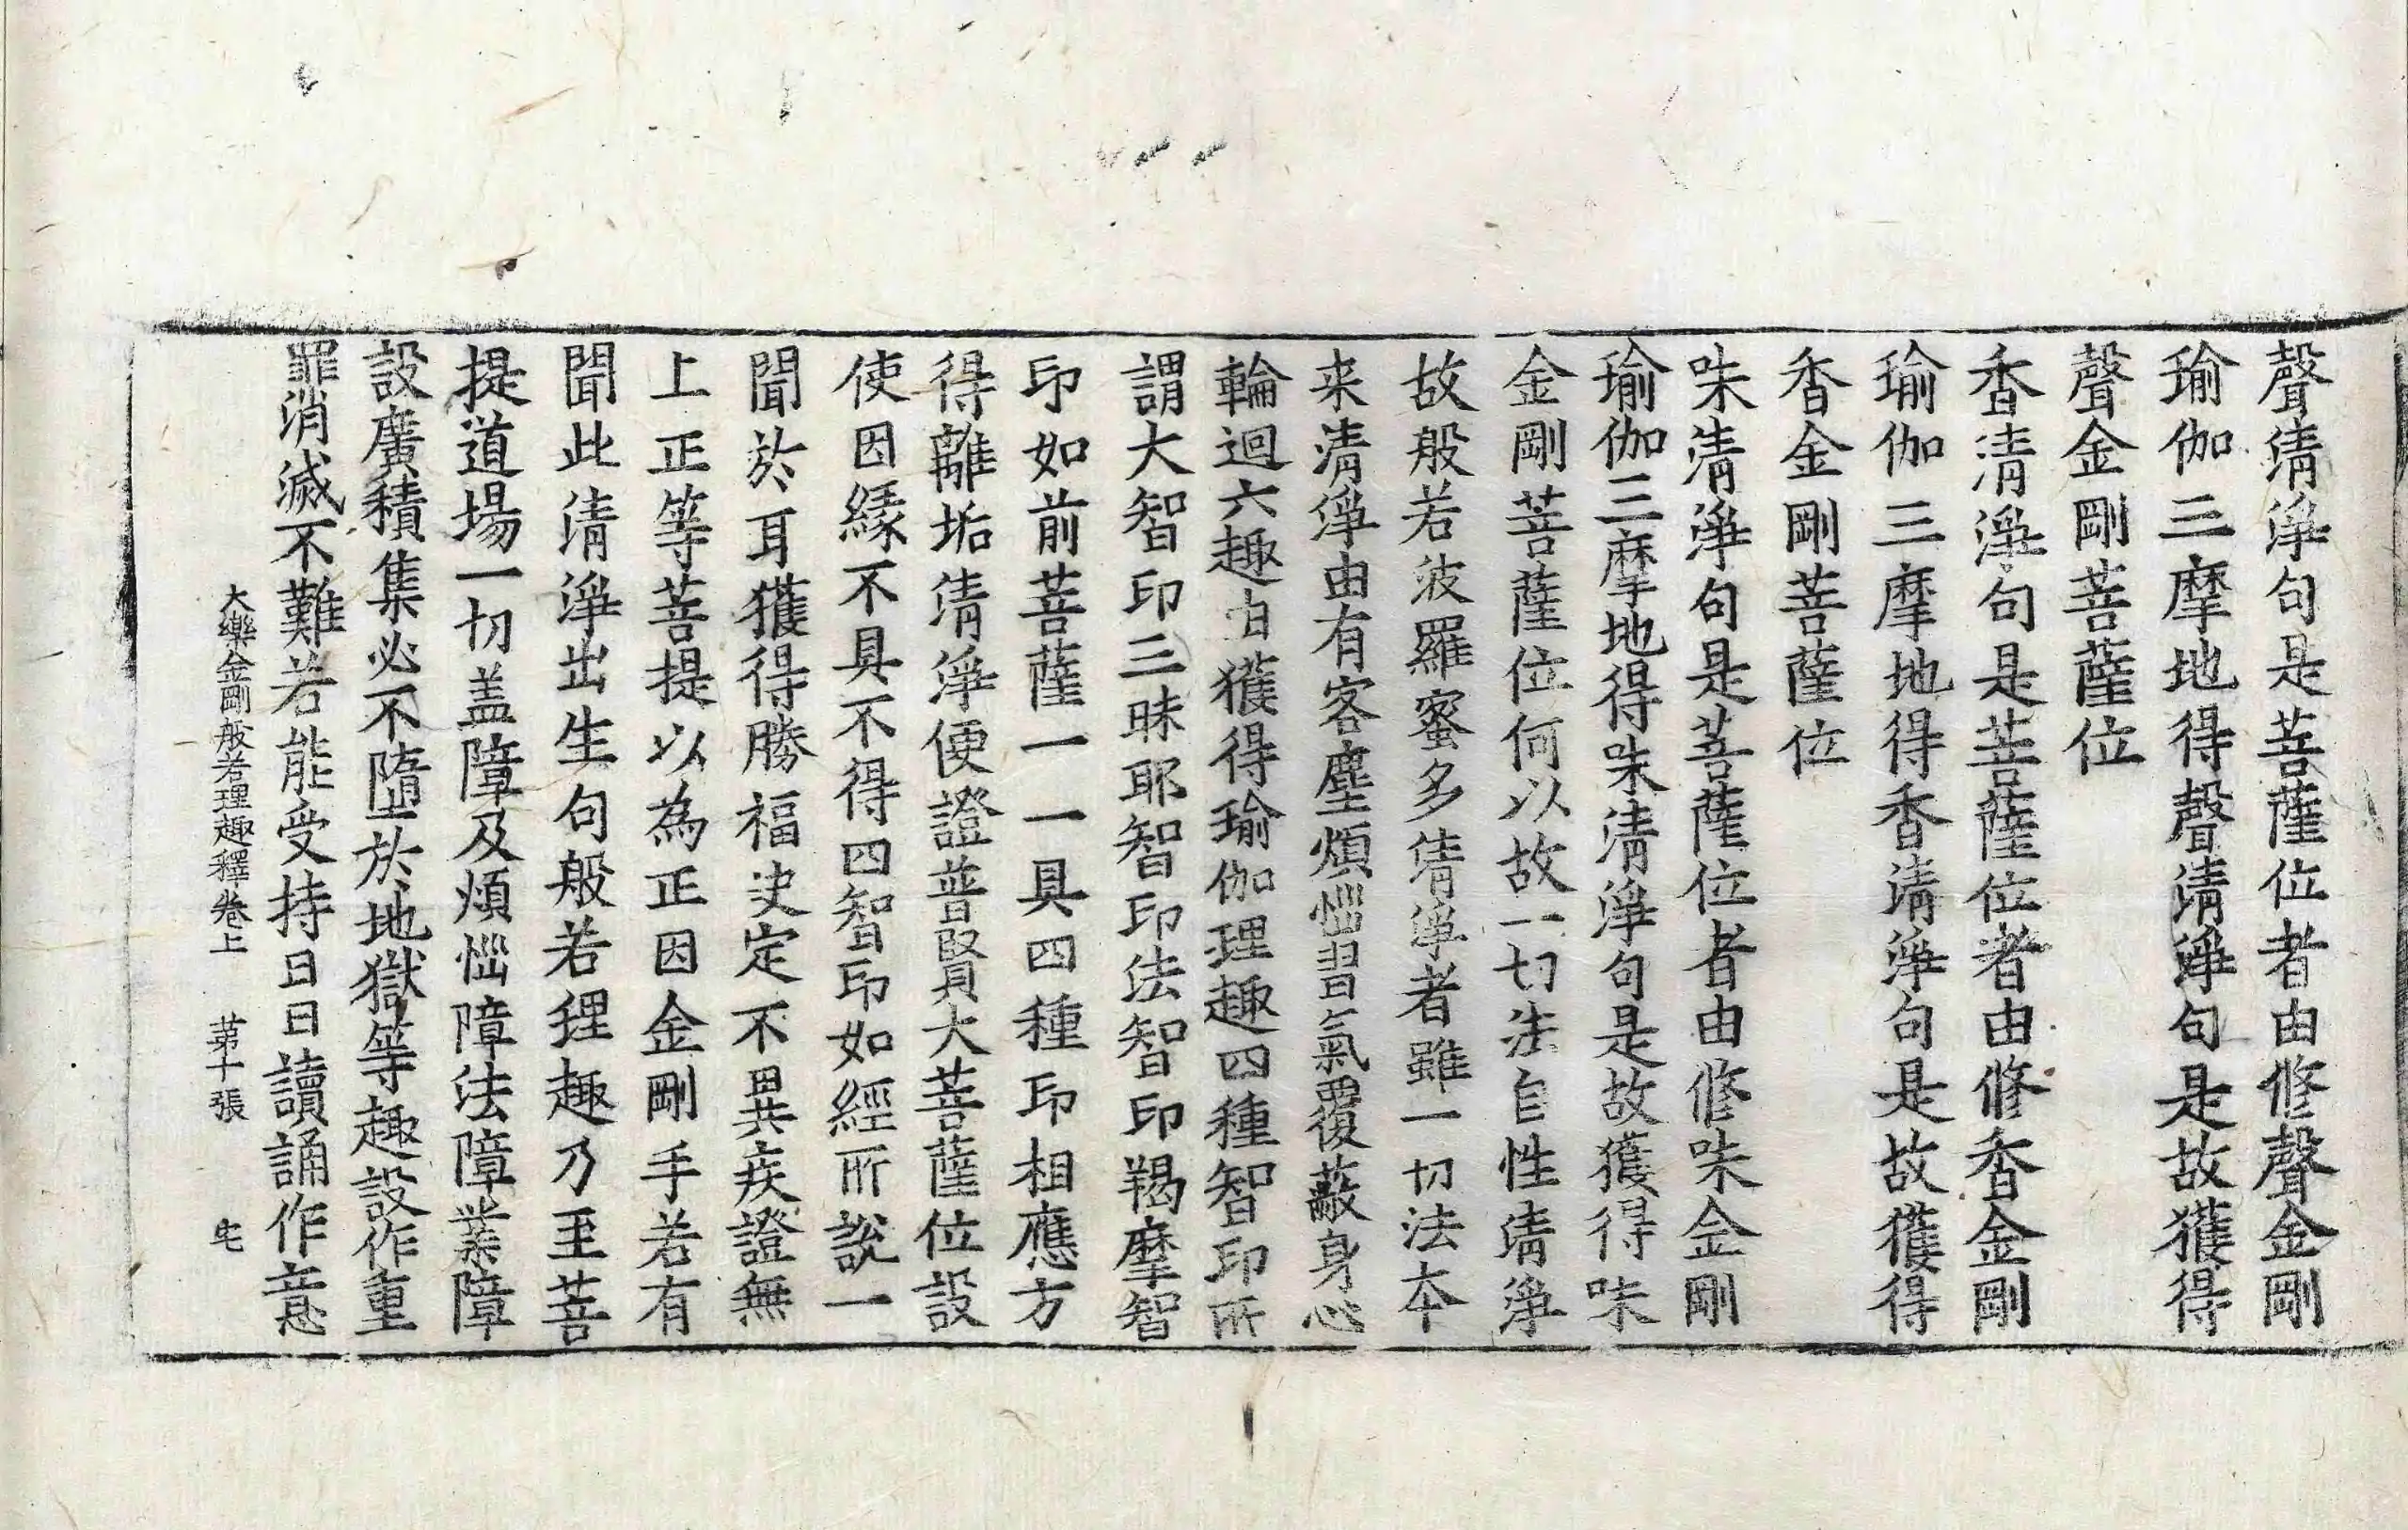 聲清淨句是菩薩位者由修聲金剛
瑜伽三摩地得聲清淨句是故獲得
聲金剛菩薩位
香清淨句是菩薩位者由修香金剛
瑜伽三摩地得香清淨句是故獲得
香金剛菩薩位
味清淨句是菩薩位者由修味金剛
瑜伽三摩地得味清淨句是故獲得味
金剛菩薩位何以故一切法自性清淨
故般若波羅蜜多清淨者雖一切法本
来清淨由有客塵煩惱習氣覆蔽身心
輪迴六趣由獲得瑜伽理趣四種智印所
謂大智印三昧耶智印法智印羯摩智
印如前菩薩一一具四種印相應方
得離垢清淨便證普賢大菩薩位設
使因緣不具不得四智印如經所說一
聞於耳獲得勝福决定不異疾證無
上正等菩提以為正因金剛手若有
聞此清淨出生句般若理趣乃至菩
提道場一切盖障及煩惱障法障業障
設廣積集必不墮於地獄等趣設作重
罪消滅不難若能受持日日讀誦作意
大樂金剛般若理趣釋卷上 苐十張 宅